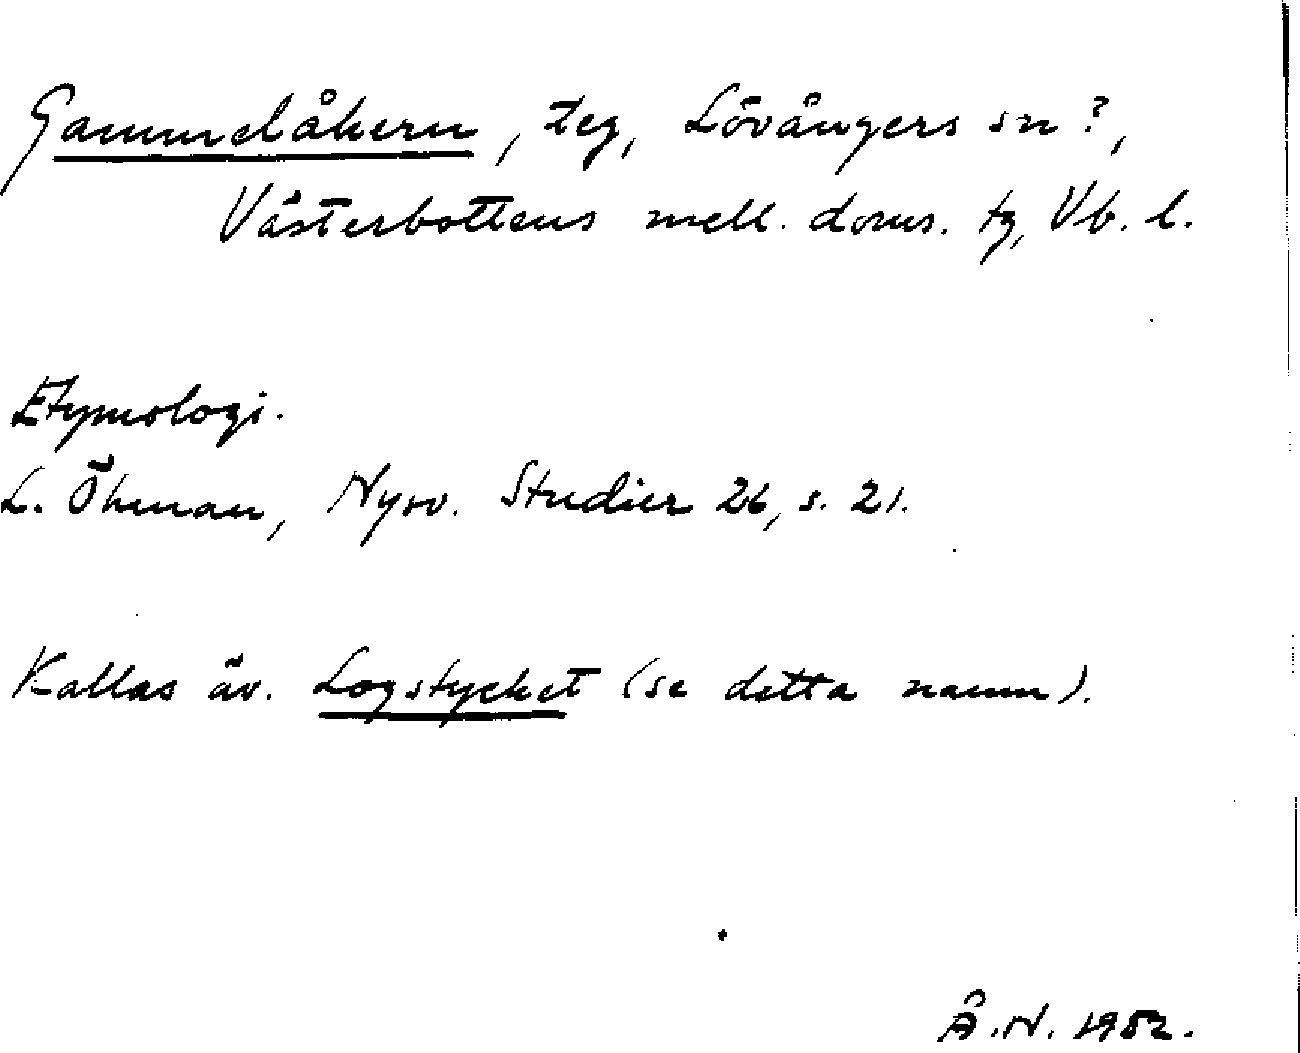 Gammelåkern, teg, Lövångers sn?,
Västerbottens mell. doms. tg, Vb. l.
Etymologi.
L. Öhman, Nysv. Studier 26, s. 21.
Kallas äv. Logstycket (se detta namn).
Å.N. 1952.